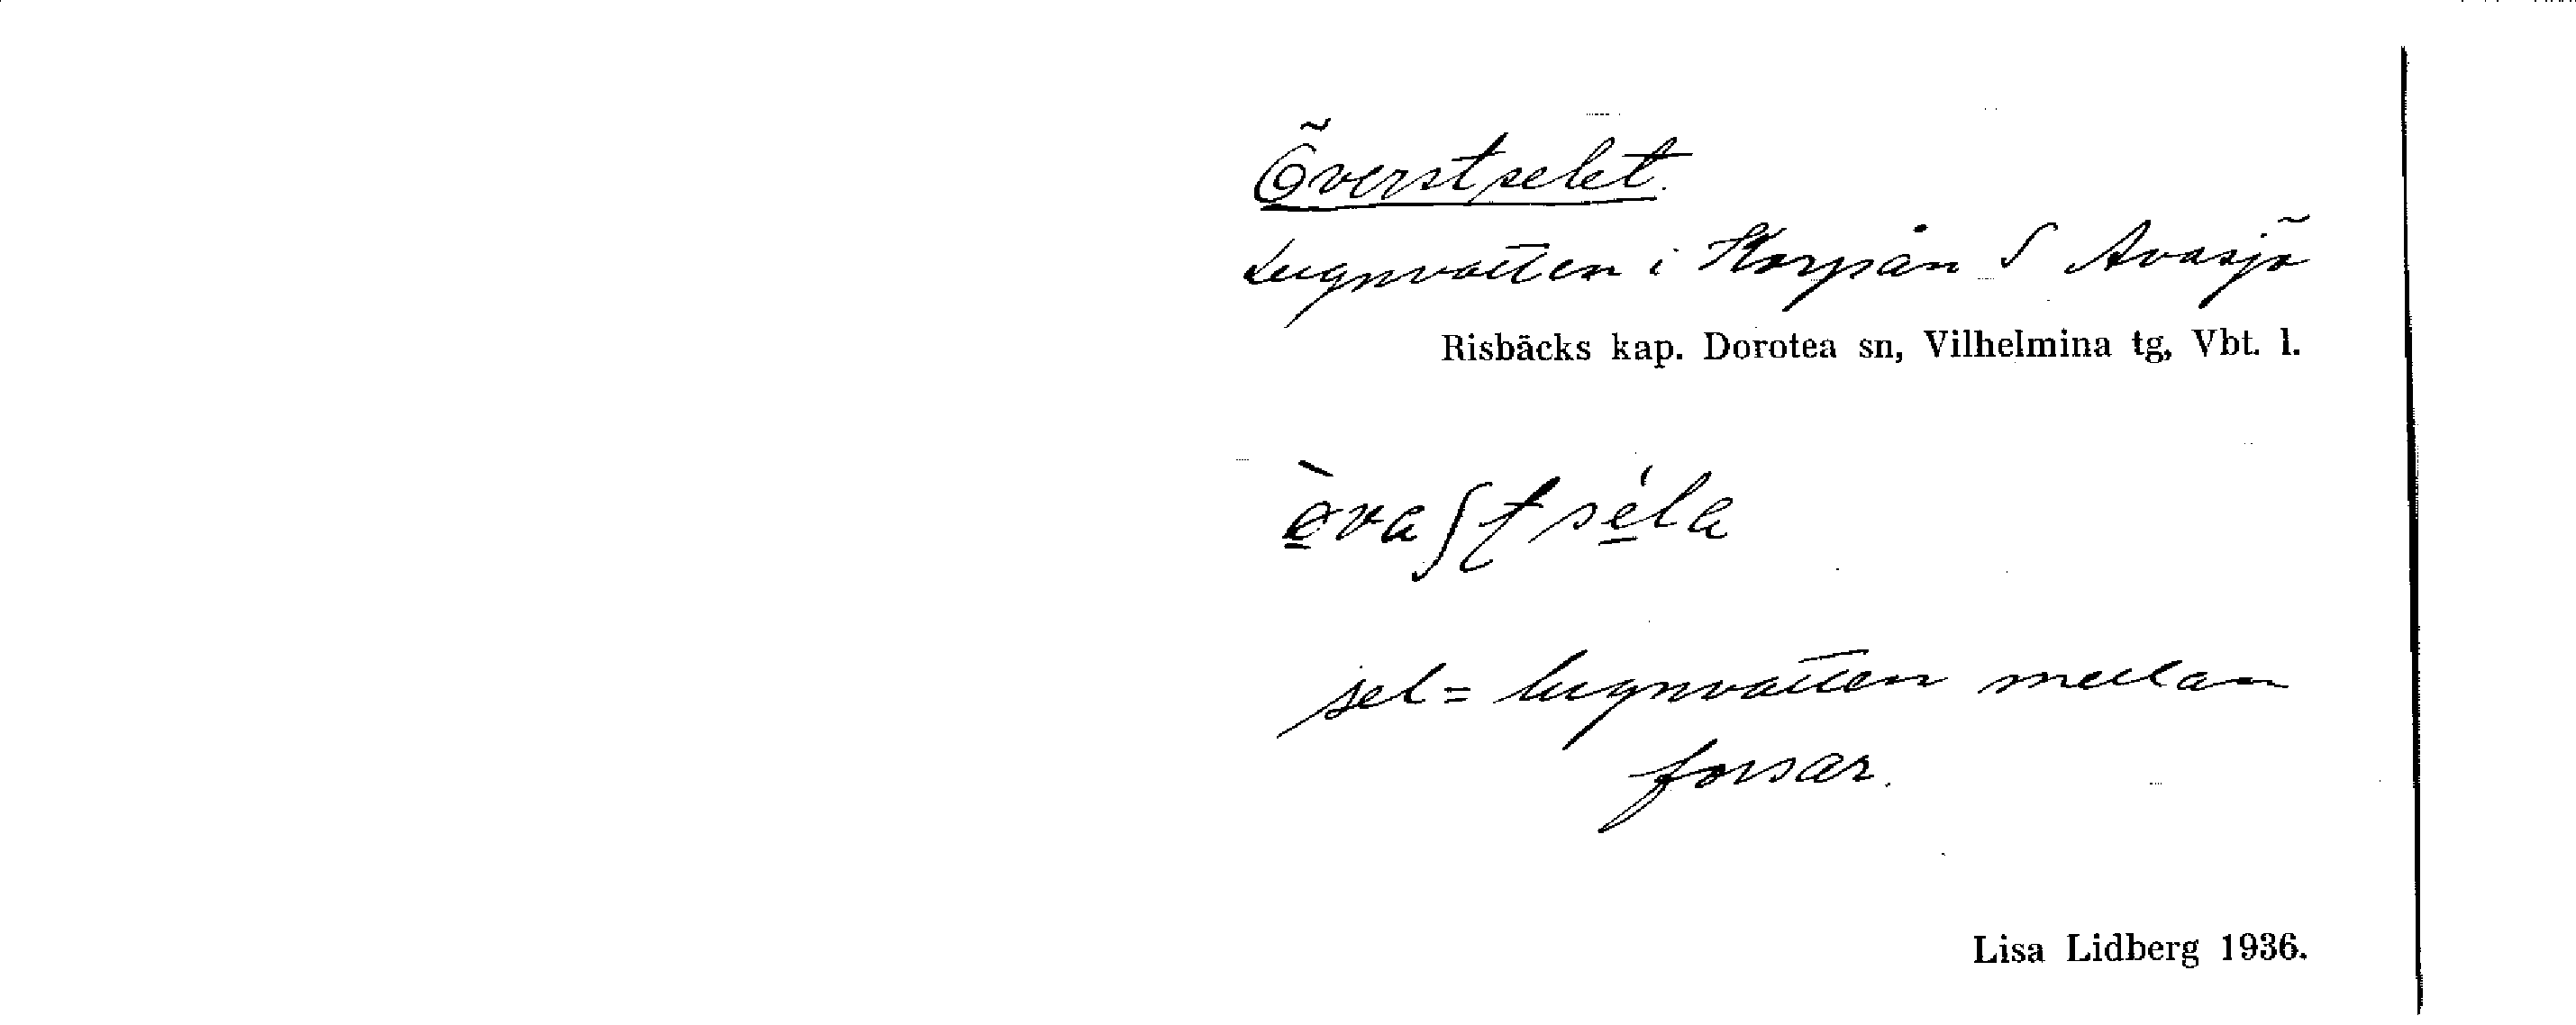 Överstselet.
Lugnvatten i Korpån S Avasjö
Risbäcks kap. Dorotea sn, Vilhelmina tg, Vbt. l.
sel = lugnvatten mellan
forsar.
Lisa Lidberg 1936.